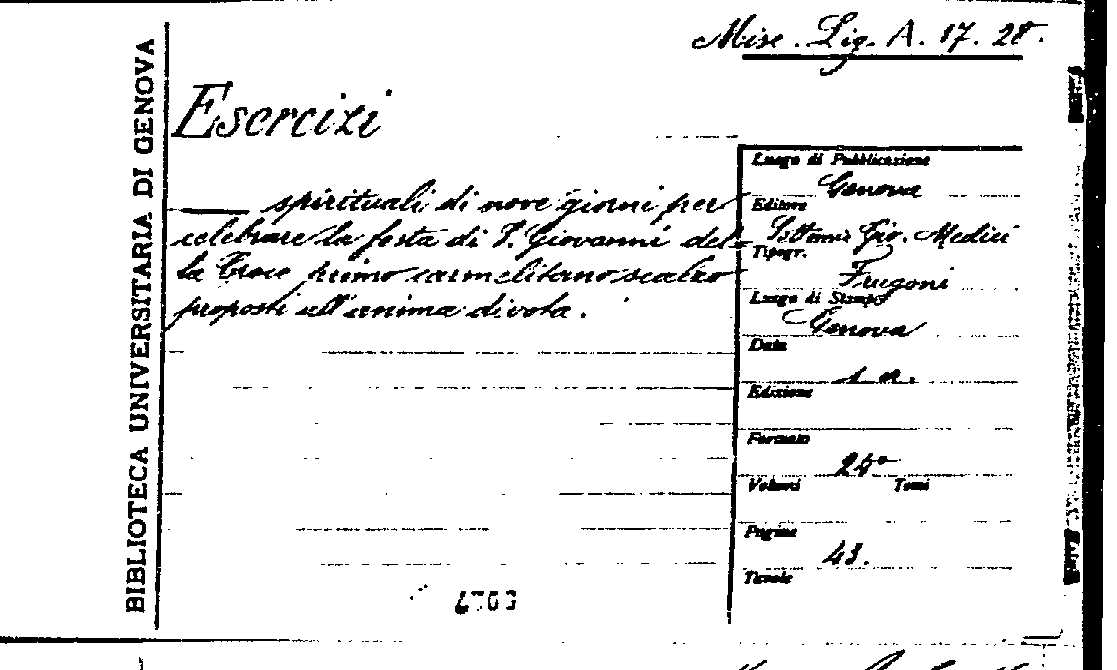 Misc. Lig. A. 17. 28.
BIBLIOTECA UNIVERSITARIA DI GENOVA
Esercizi
spirituali di nove giorni per
celebrare la festa di S. Giovanni del=
la Croce primo carmelitano scalzo
proposti all'anima divota.
Luogo di Pubblicazione
Genova
Editore
Gio. Medici
Tipogr.
Frugoni
Luogo di Stampa
Genova
Data
s. a.
Edizione
Formato
Volumi Tomi
Pagine
43.
Tavole